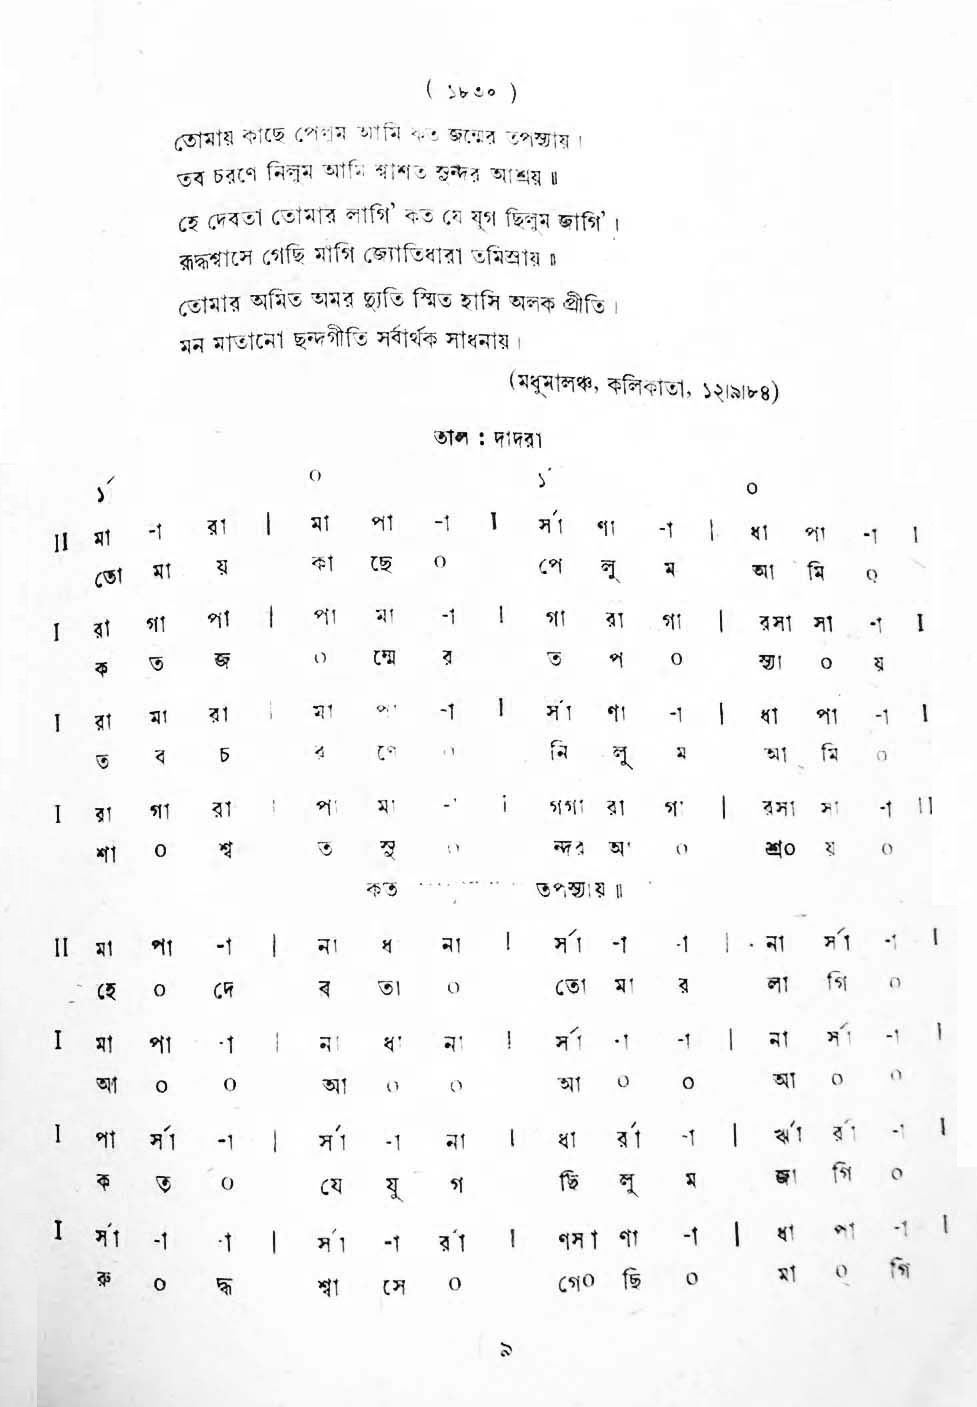 ( ১৮৩০ )
তোমায় কাছে পেলুম আমি কত জন্মের তপস্যায় ।
তব চরণে নিলুম আমি শাশ্বত সুন্দর আশ্রয় ॥
হে দেবতা তোমার লাগি’ কত যে যুগ ছিলুম জাগি’ ।
রুদ্ধশ্বাসে গেছি মাগি জ্যোতিধারা তমিস্রায় ॥
তোমার অমিত অমর দ্যুতি স্মিত হাসি অলক প্রীতি ।
মন মাতানো ছন্দগীতি সর্বার্থক সাধনায় ।
(মধুমালঞ্চ, কলিকাতা, ১২।৯।৮৪)
তাল : দাদরা
১´ ০ ১´ ০
II মা -া রা | মা পা -া I র্সা ণা -া | ধা পা -া I
তো মা য় কা ছে ০ পে লু ম আ মি ০
I রা গা পা | পা মা -া I গা রা গা | রসা সা -া I
ক ত জ ০ ন্মে র ত প ০ স্যা ০ য়
I রা মা রা | মা পা -া I র্সা ণা -া | ধা পা -া I
ত ব চ র ণে ০ নি লু ম আ মি ০
I রা গা রা | পা মা -া I গগা রা গা | রসা সা -া II
শা ০ শ্ব ত সু ০ ন্দর আ ০ শ্র০ য় ০
কত ............ তপস্যায় ॥
II মা পা -া | না ধ না I র্সা -া -া | না র্সা -া I
হে ০ দে ব তা ০ তো মা র লা গি ০
I মা পা -া | না ধা না I র্সা -া -া | না র্সা -া I
আ ০ ০ আ ০ ০ আ ০ ০ আ ০ ০
I পা র্সা -া | র্সা -া না I ধা র্রা -া | র্ঋা র্রা -া I
ক ত ০ যে যু গ ছি লু ম জা গি ০
I র্সা -া -া | র্সা -া র্রা I ণসা ণা -া | ধা পা -া I
রু ০ দ্ধ শ্বা সে ০ গে০ ছি ০ মা ০ গি
৯